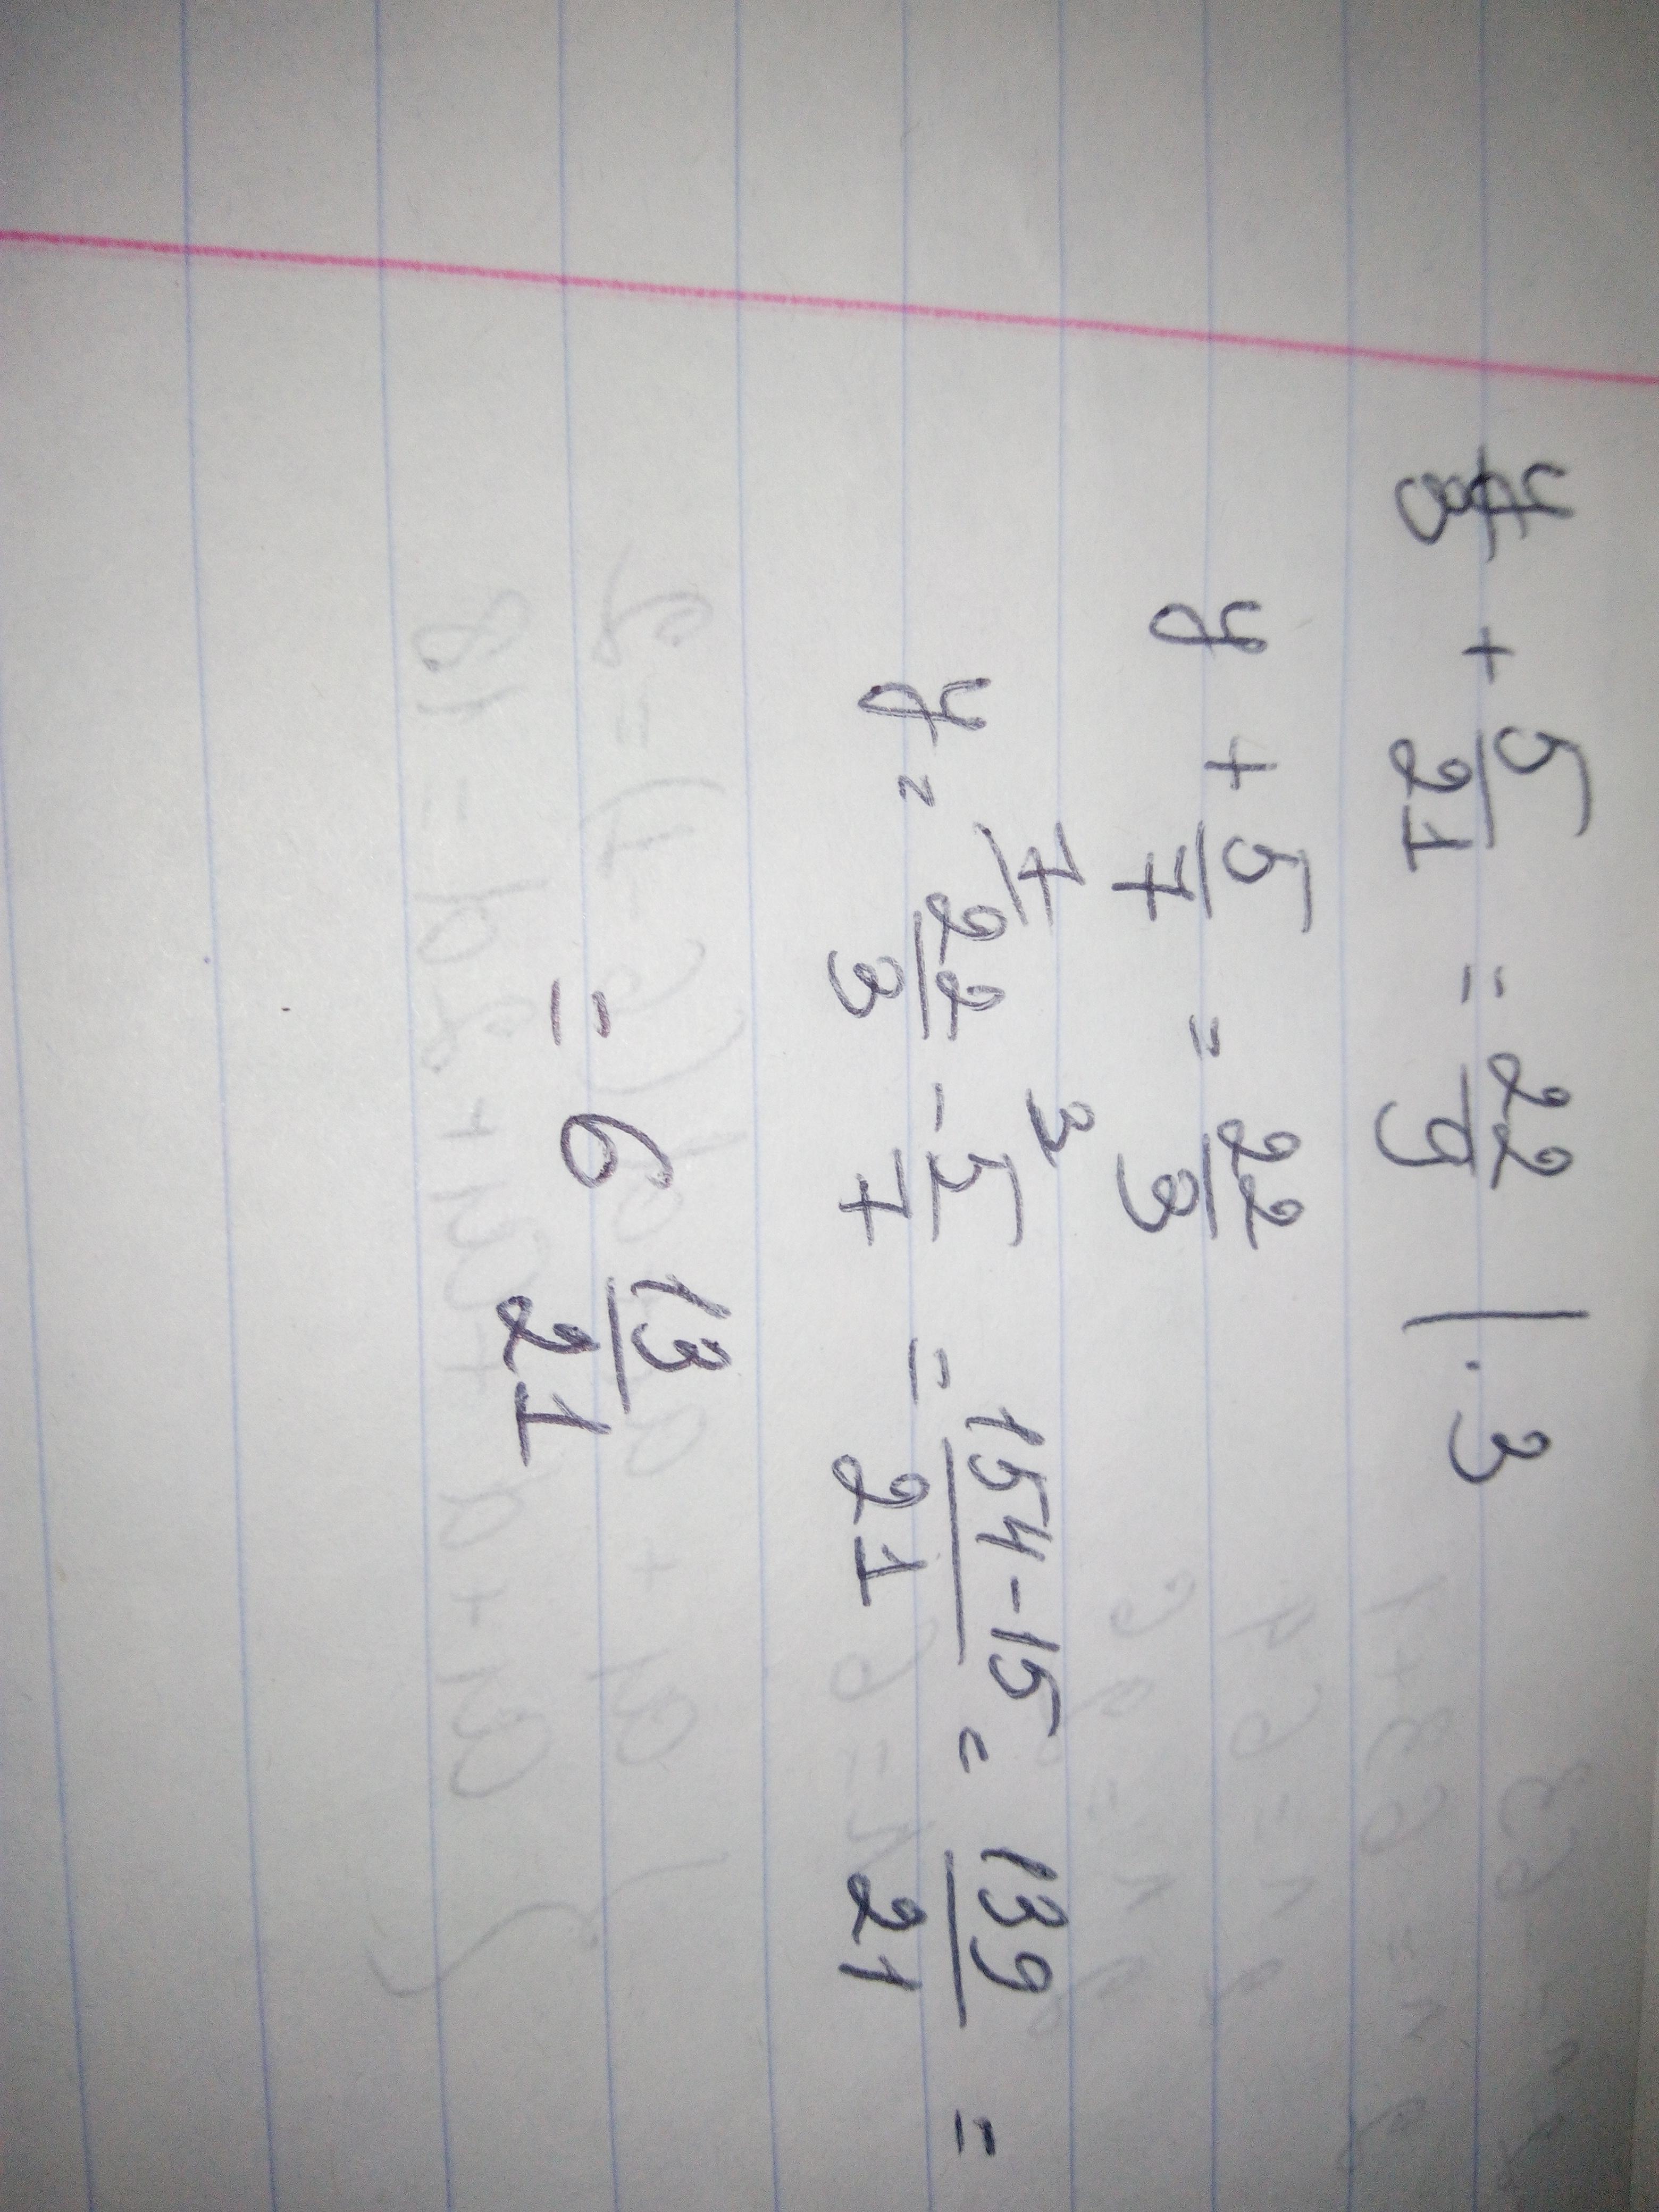 y/3 + 5/21 = 22/9 | · 3
y + 5/7 = 22/3
y = 7/ 22/3 - 3 5/7 = 154-15/21 = 139/21 =
= 6 13/21